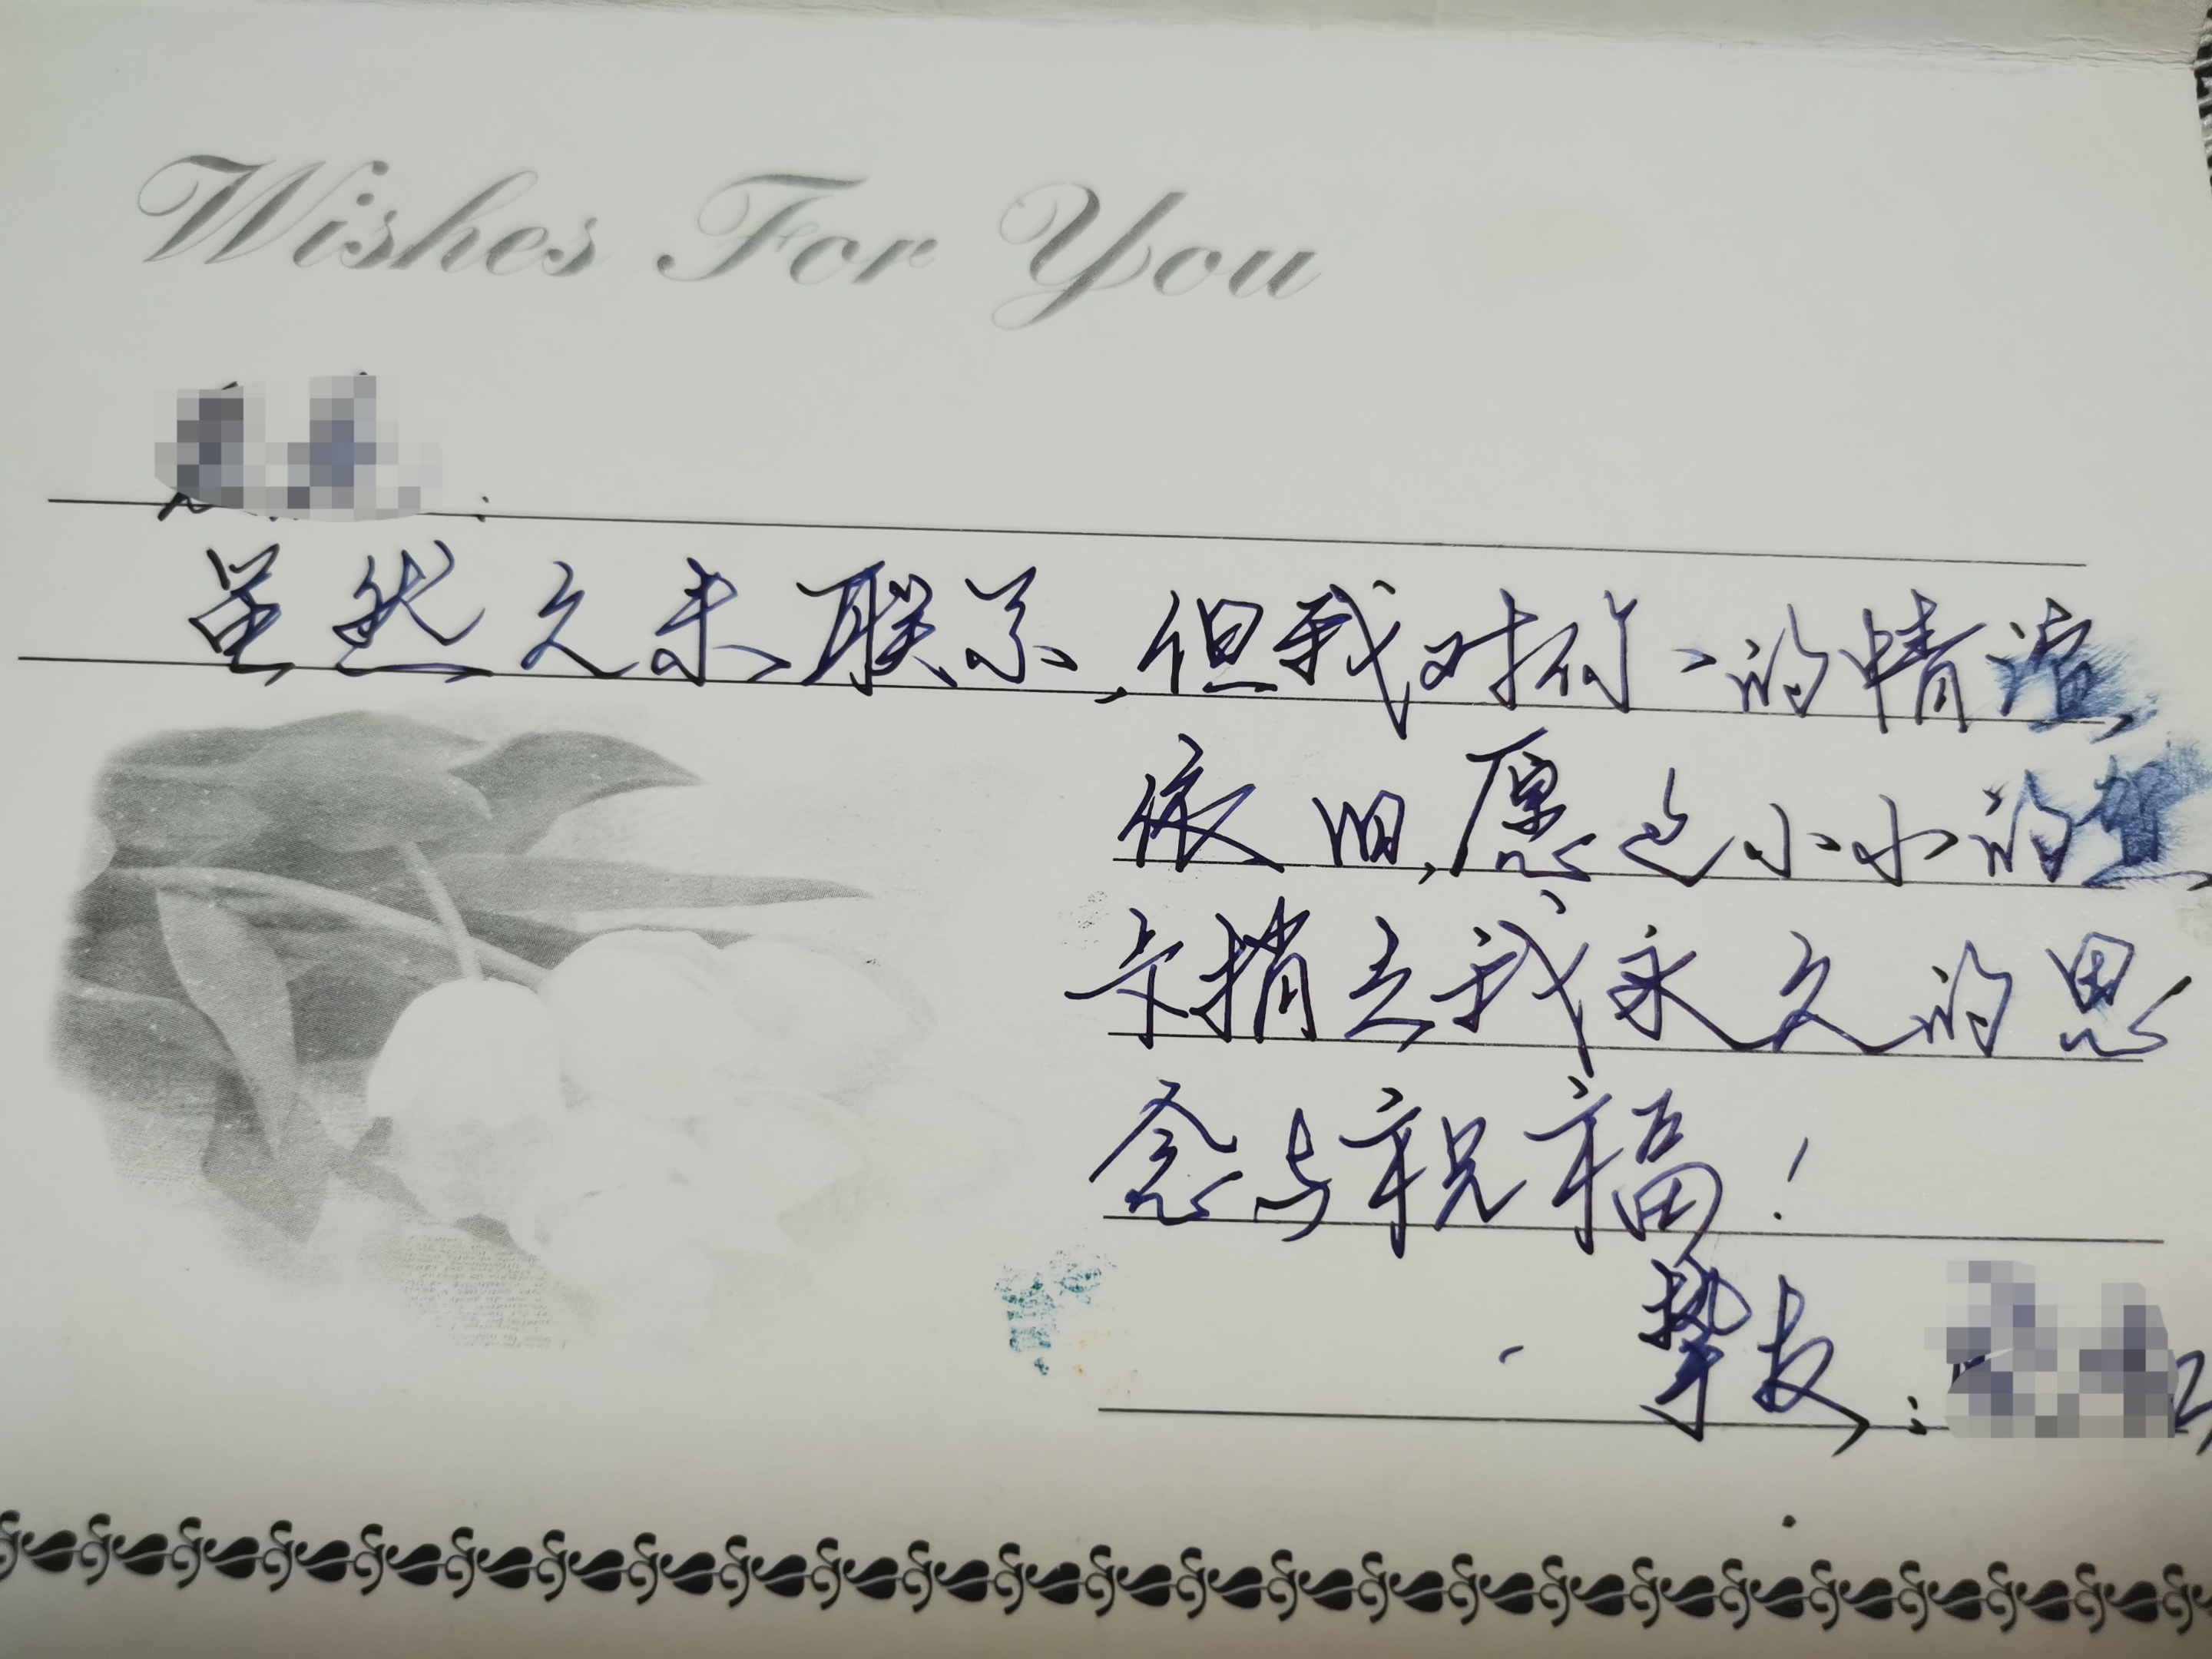 Wishes For You
:
虽然久未联系,但我对你、的情谊,
依旧,愿这小小的贺
卡捎去我永久的思
念与祝福!
挚友: